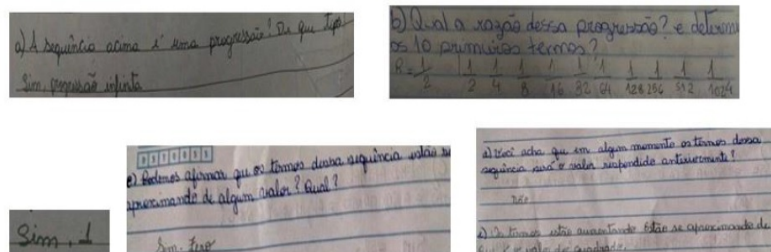 a) A sequência acima é uma progressão? De que tipo?
Sim, progressão infinita
b) Qual a razão dessa progressão? e determine
os 10 primeiros termos?
R = 1/2 1/2 1/4 1/8 1/16 1/32 1/64 1/128 1/256 1/512 1/1024
c) Podemos afirmar que os termos dessa sequência estão se
aproximando de algum valor? Qual?
Sim. Zero
Sim, 1
d) Você acha que em algum momento os termos dessa
sequência será o valor respondido anteriormente?
não
Os termos estão aumentando estão se aproximando de
valor do quadrado